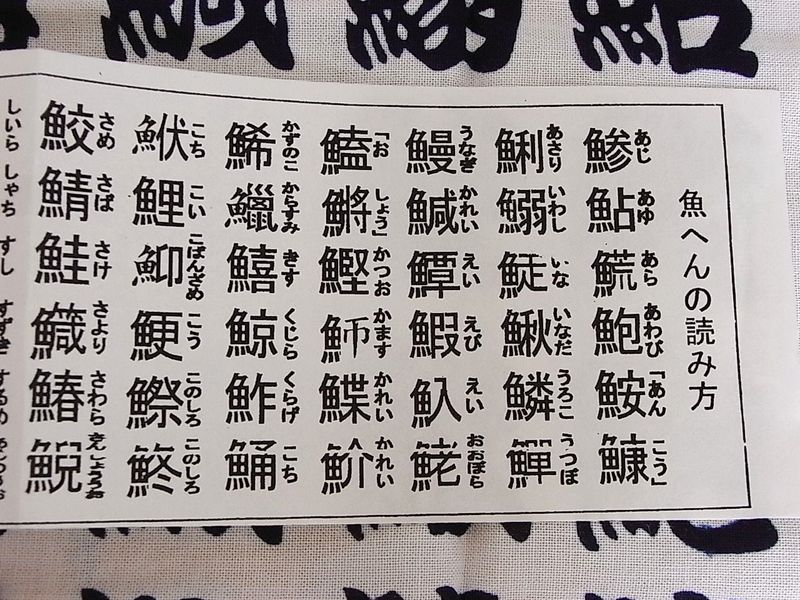 魚へんの読み方
あじ あゆ あら あわび 「あん こう」
鯵鮎𩺊鮑鮟鱇
あさり いわし いな いなだ うろこ うつぼ
鯏鰯鯐鰍鱗鱓
うなぎ かれい えい えび えい おおぼら
鰻鰔鱏鰕魞鮱
「お しょう」 かつお かます かれい かれい
鰪鱂鰹魳鰈魪
かずのこ からすみ きす くじら くらげ こち
鯑鱲鱚鯨鮓鯒
こち こい こばんざめ こう このしろ このしろ
鮲鯉鯁鰶鮗
さめ さば さけ さより さわら
鮫鯖鮭鱵鰆鯢
しいら しゃち すし すずき するめ